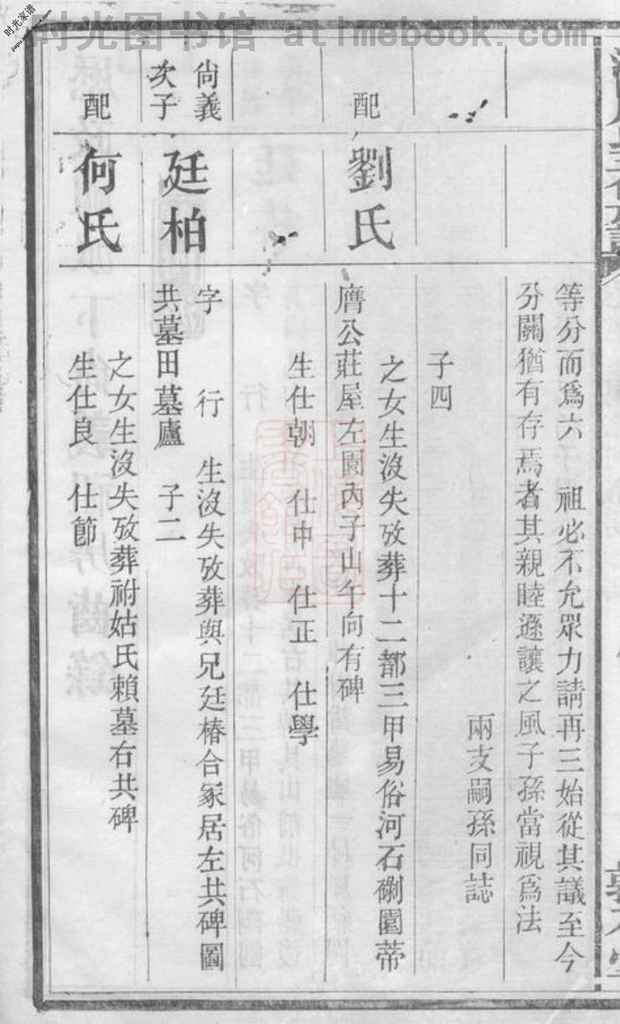 时光图书馆 atimebook.com
时光家谱
等分而爲六 祖必不允眾力請再三始從其議至今
分關猶有存焉者其親睦遜讓之風子孫當視爲法
兩支嗣孫同誌
子四
配
劉氏
之女生沒失攷葬十二都三甲易俗河石𥕢園蒂
膺公莊屋左園內子山午向有碑
生仕朝 仕中 仕正 仕學
尙義
次子
廷柏
字 行 生沒失攷葬與兄廷椿合冢居左共碑圖
共墓田墓廬 子二
配
何氏
之女生沒失攷葬祔姑氏賴墓右共碑
生仕良 仕節